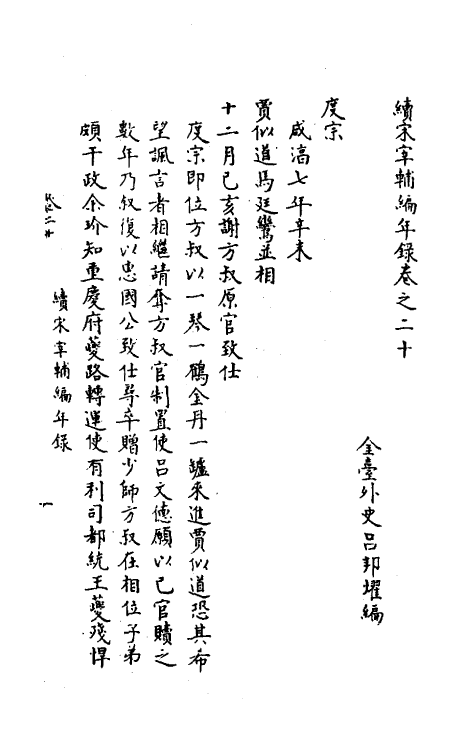 續宋宰輔編年錄卷之二十
金臺外史呂邦燿編
度宗
咸淳七年辛未
賈似道馬廷鸞並相
十二月己亥謝方叔原官致仕
度宗即位方叔以一琴一鶴金丹一罏來進賈似道恐其希
望諷言者相繼請奪方叔官制置使呂文德願以己官贖之
數年乃叙復以惠國公致仕尋卒贈少師方叔在相位子弟
頗干政余玠知重慶府夔路轉運使有利司都統王夔殘悍
卷二十
續宋宰輔編年錄
一